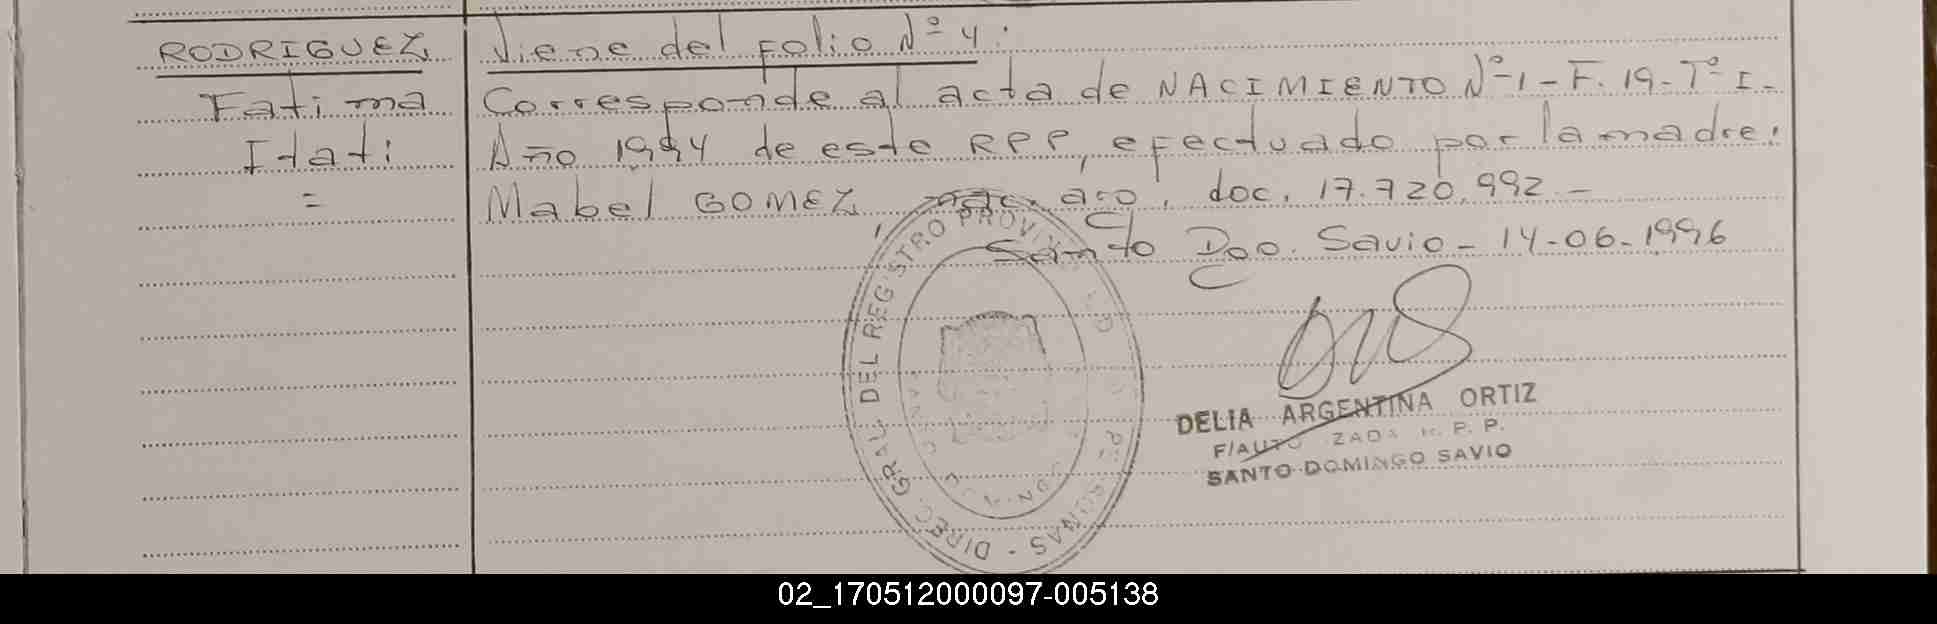 RODRIGUEZ
Fatima
Itati
=
Viene del Folio Nº 4:
Corresponde al acta de NACIMIENTO Nº 1 - F. 19 - Tº I -
Año 1994 de este RPP, efectuado por la madre:
Mabel GOMEZ, nac. arg, doc. 17.720.992 -
Santo Dgo. Savio - 14-06-1996
DIREC. GRAL. DEL REGISTRO
DELIA ARGENTINA ORTIZ
SANTO DOMINGO SAVIO
02_170512000097-005138